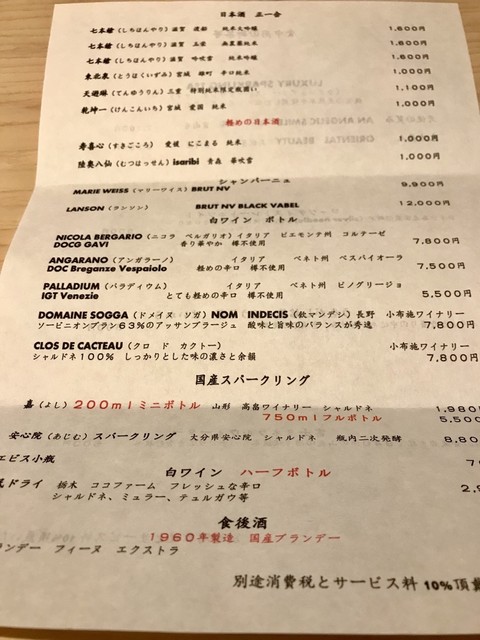 日本酒 正一合
七本槍（しちほんやり）滋賀 渡船 純米大吟醸 1,600円
七本槍（しちほんやり）滋賀 玉栄 無農薬純米 1,800円
七本槍（しちほんやり）滋賀 吟吹雪 純米吟醸 1,600円
東北泉（とうほくいずみ）宮城 雄町 辛口純米 1,000円
天遊琳（てんゆうりん）三重 特別純米限定瓶囲い 1,100円
乾坤一（けんこんいち）宮城 愛国 純米 1,000円
軽めの日本酒
寿喜心（すきごころ） 愛媛 にこまる 純米 1,000円
陸奥八仙（むつはっせん）isaribi 青森 華吹雪 1,000円
シャンパーニュ
MARIE WEISS（マリーワイス）BRUT NV 9,900円
LANSON（ランソン） BRUT NV BLACK VABEL 12,000円
白ワイン ボトル
NICOLA BERGARIO（ニコラ ベルガリオ）イタリア ピエモンテ州 コルテーゼ
DOCG GAVI 香り華やか 樽不使用 7,800円
ANGARANO（アンガラーノ） イタリア ベネト州 ベスパイオーラ
DOC Breganze Vespaiolo 軽めの辛口 樽不使用 7,500円
PALLADIUM（パラディウム） イタリア ベネト州 ピノグリージョ
IGT Venezie とても軽めの辛口 樽不使用 5,500円
DOMAINE SOGGA（ドメイヌ ソガ）NOM INDECIS（飲マンデシ）長野 小布施ワイナリー
ソービニオンブラン６３％のアッサンブラージュ 酸味と旨味のバランスが秀逸 7,800円
CLOS DE CACTEAU（クロ ド カクトー） 小布施ワイナリー
シャルドネ１００％ しっかりとした味の濃さと余韻 7,800円
国産スパークリング
嘉（よし）200mlミニボトル 山形 高畠ワイナリー シャルドネ 1,980
750mlフルボトル 5,500
安心院（あじむ）スパークリング 大分県安心院 シャルドネ 瓶内二次発酵 8,80
エビス小瓶
白ワイン ハーフボトル
ドライ 栃木 ココファーム フレッシュな辛口
シャルドネ、ミュラー、テュルガウ等
食後酒
1960年製造 国産ブランデー
ンデー フィーヌ エクストラ
別途消費税とサービス料10％頂